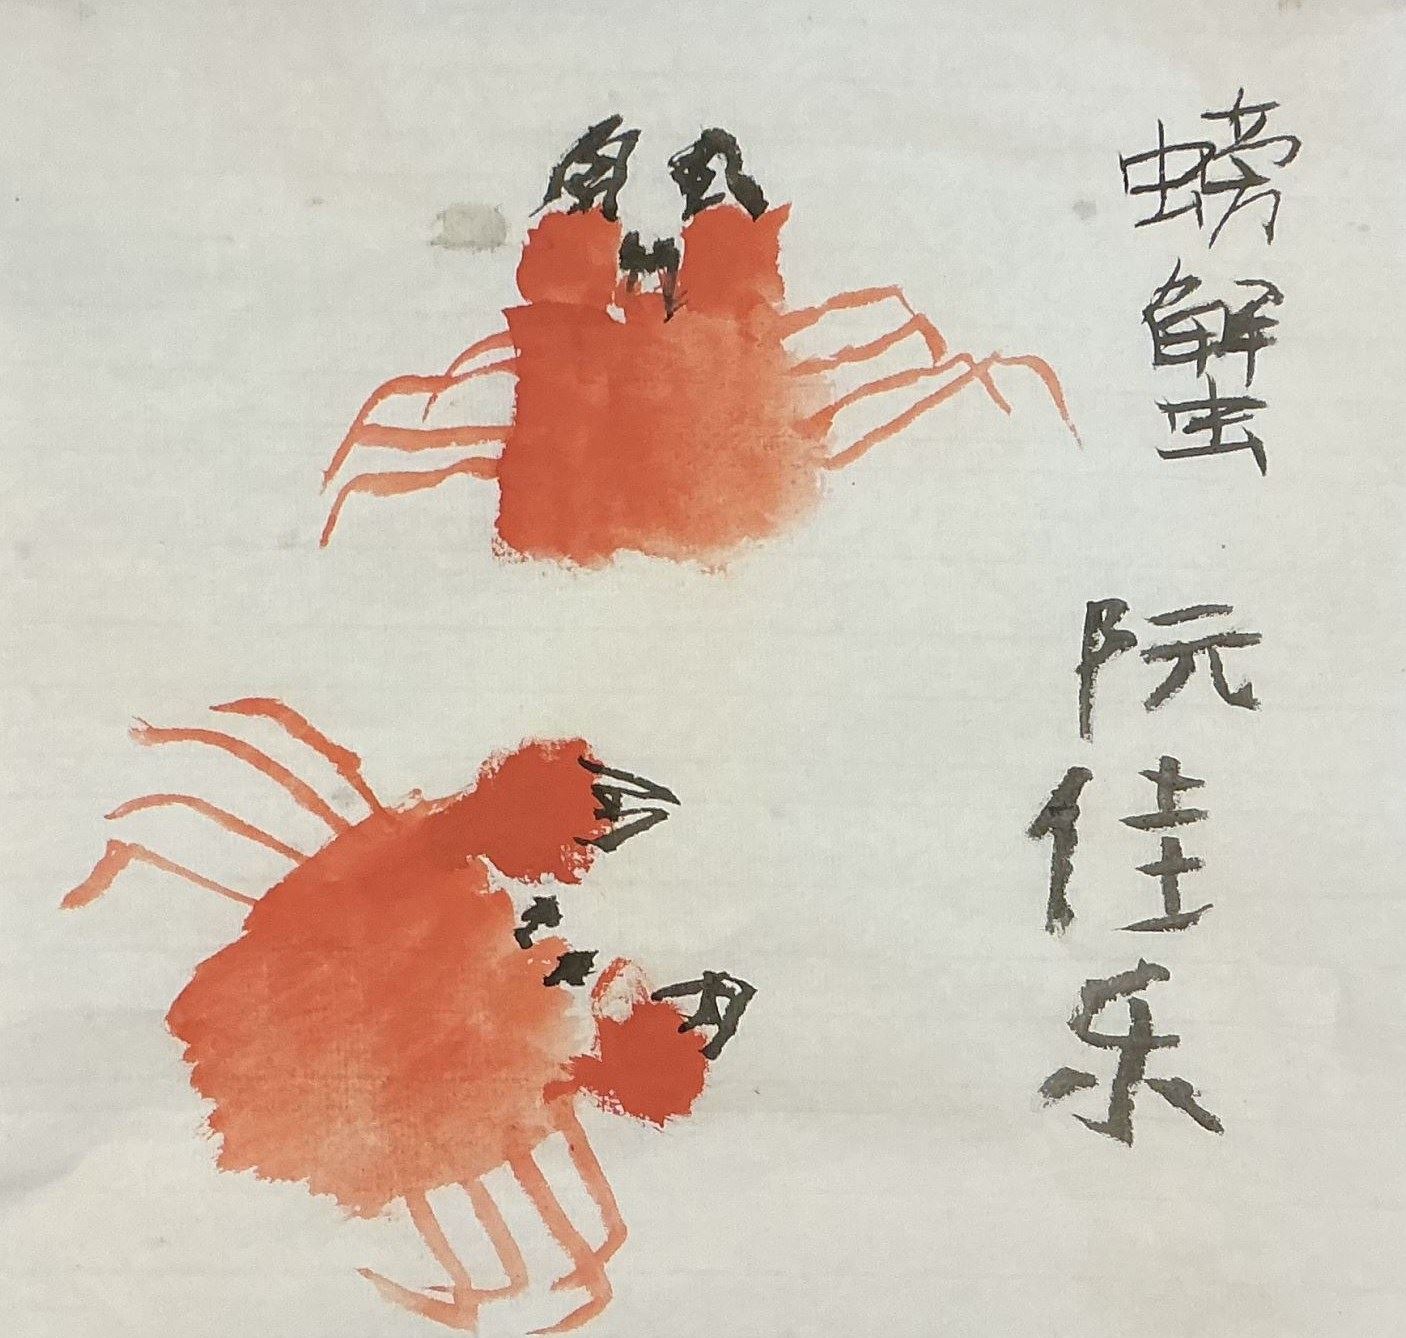 螃蟹
阮佳乐